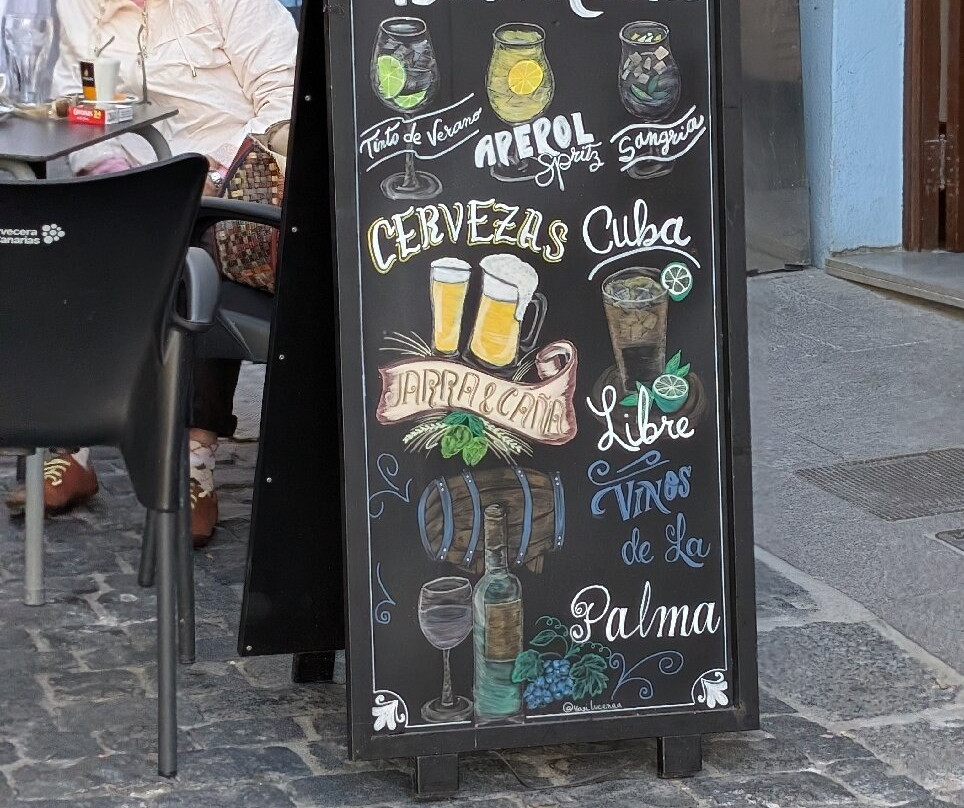 Tinto de Verano
APEROL
Spritz
Sangria
CERVEZAS
Cuba
JARRA & CAÑA
Libre
VINOS
de La
Palma
vecera
Canarias